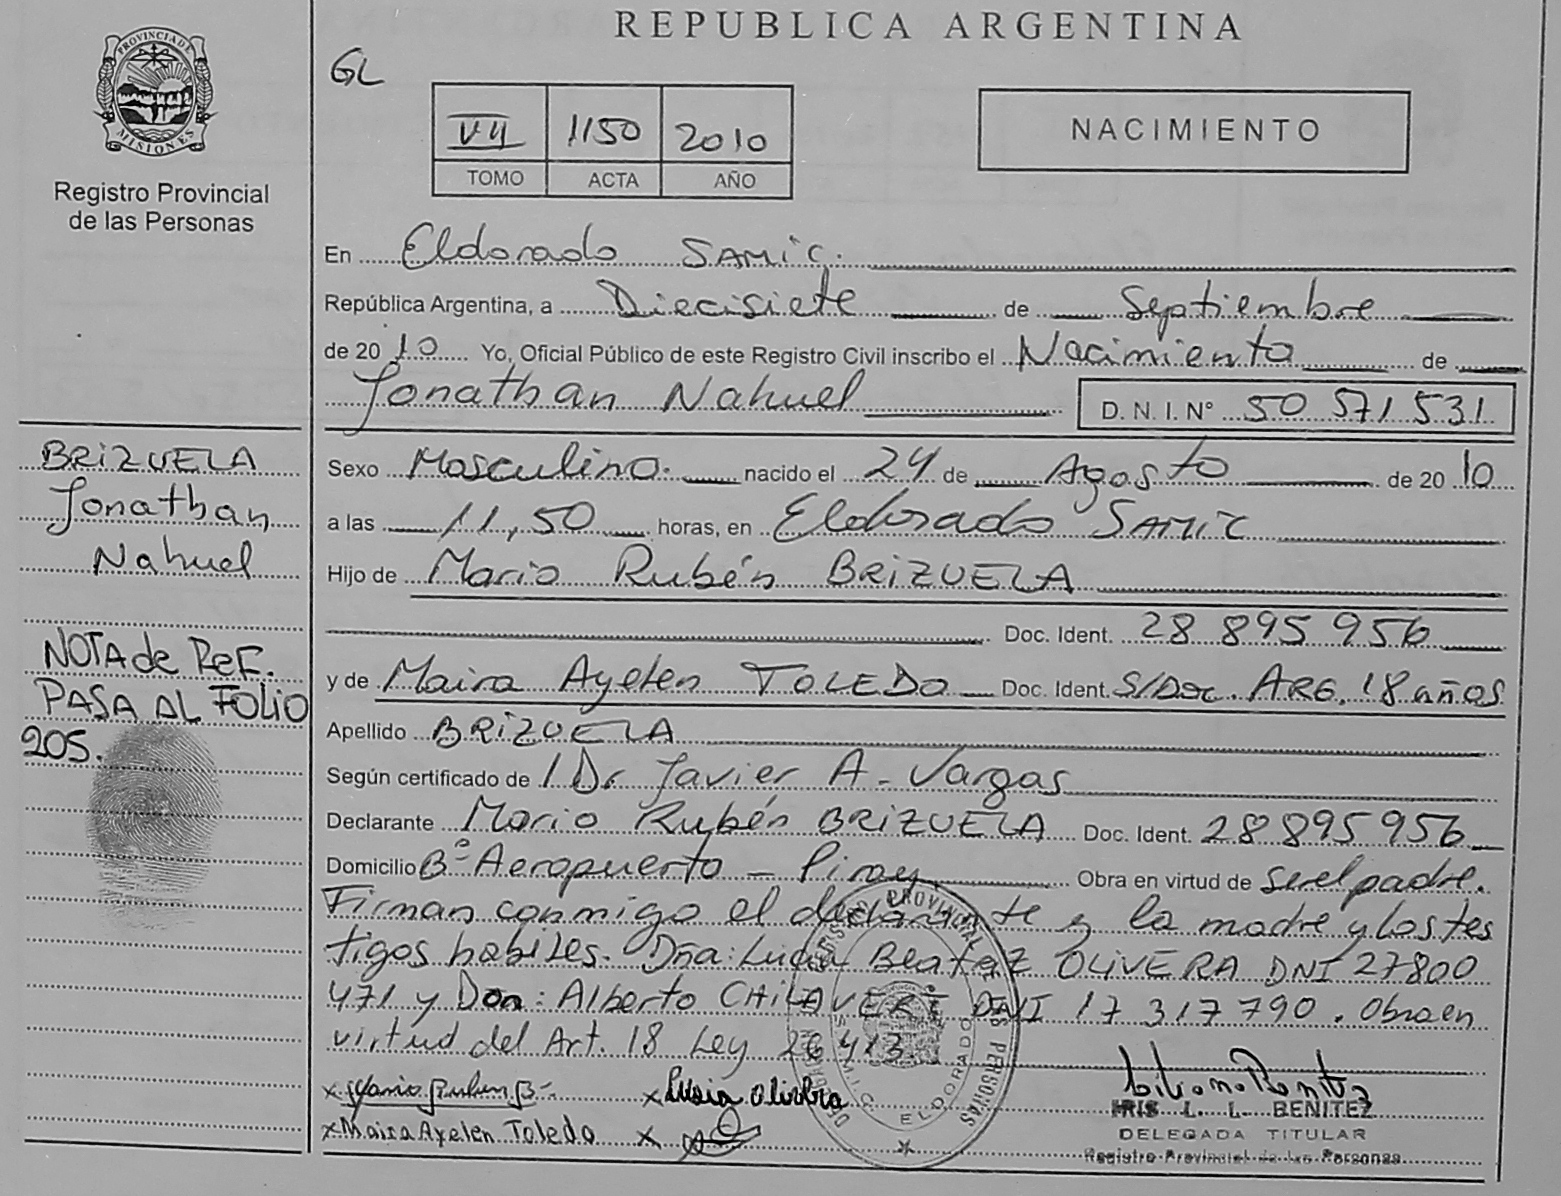 REPUBLICA ARGENTINA
PROVINCIA DE
MISIONES
Registro Provincial
de las Personas
GL
VII 1150 2010
TOMO ACTA AÑO
NACIMIENTO
En Eldorado SAMIC.
República Argentina, a Diecisiete de Septiembre
de 2010 Yo, Oficial Público de este Registro Civil inscribo el Nacimiento de
Jonathan Nahuel D. N. I. Nº 50 571 531
Sexo Masculino. nacido el 24 de Agosto de 2010
a las 11,50 horas, en Eldorado SAMIC
Hijo de Mario Rubén BRIZUELA
Doc. Ident. 28 895 956
y de Maira Ayelen TOLEDO Doc. Ident. S/Doc. ARG. 18 años
Apellido BRIZUELA
Según certificado de 1 Dr Javier A. Vargas
Declarante Mario Rubén BRIZUELA Doc. Ident. 28 895 956
Domicilio Bº Aeropuerto - Piray Obra en virtud de ser el padre.
Firman conmigo el declarante y la madre y los tes
tigos habiles. Dña: Lucia Beatriz OLIVERA DNI 27800
471 y Don: Alberto CHILAVERT DNI 17 317 790. Obra en
virtud del Art. 18 Ley 26 413
x Mario Ruben B x Lusia olivera
x Maira Ayelen Toledo x
IRIS L. L. BENITEZ
DELEGADA TITULAR
Registro Provincial de las Personas
BRIZUELA
Jonathan
Nahuel
NOTA de REF.
PASA AL FOLIO
205.
PROVINCIAL DE LAS PERSONAS
ELDORADO